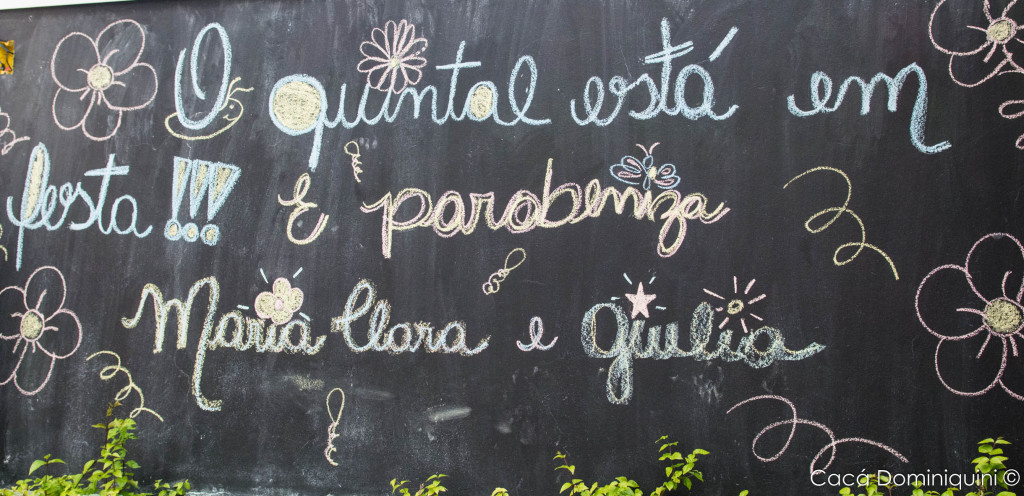 O quintal está em
festa!!! E parabeniza
Maria Clara e Giulia
Cacá Dominiquini ©